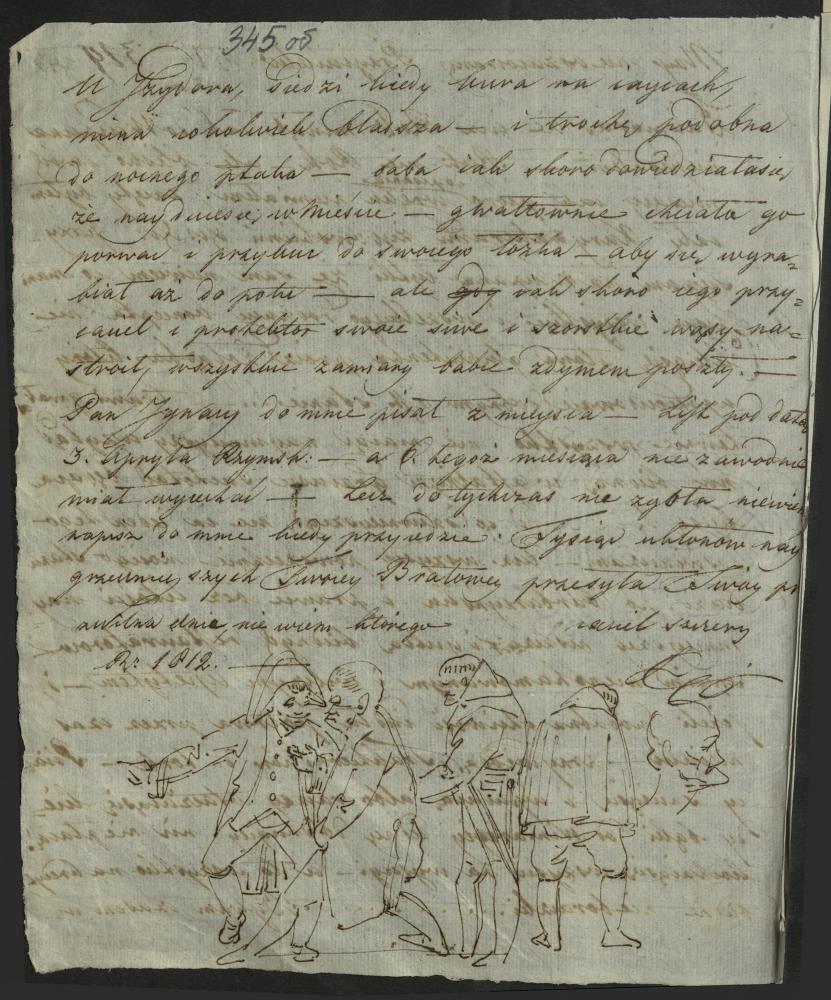 345 об
U Jzydora, Siedzi kiedy kura na jaycach,
mina cokolwiek bladsza — i trochę podobna
do nocnego ptaka — baba jak skoro dowiedziała się,
że nayduiesię w Mieście — gwałtownie chciała go
porwać i przykuć do swoiego łóżka — aby się wyra=
biał aż do potu — ale gdy jak skoro iego przy=
iaciel i protektor swoie siwe i szorstkie wąsy na=
stroił, wszystkie zamiary babie zdymem poszły. —
Pan Jgnacy do mnie pisał z mieysca — List pod datą
3. Apryla Rzymsk: — a 6. tegoż miesiąca nie zawodnie
miał wyiechać — Lecz dotychczas nie
napisz do mnie kiedy przyiedzie. Tysiąc ukłonów nay
grzecznieyszych Twoiey Bratowey przesyła Twóy pr
zwilna dnia nie wiem którego iaciel szczery
Rr. 1812.